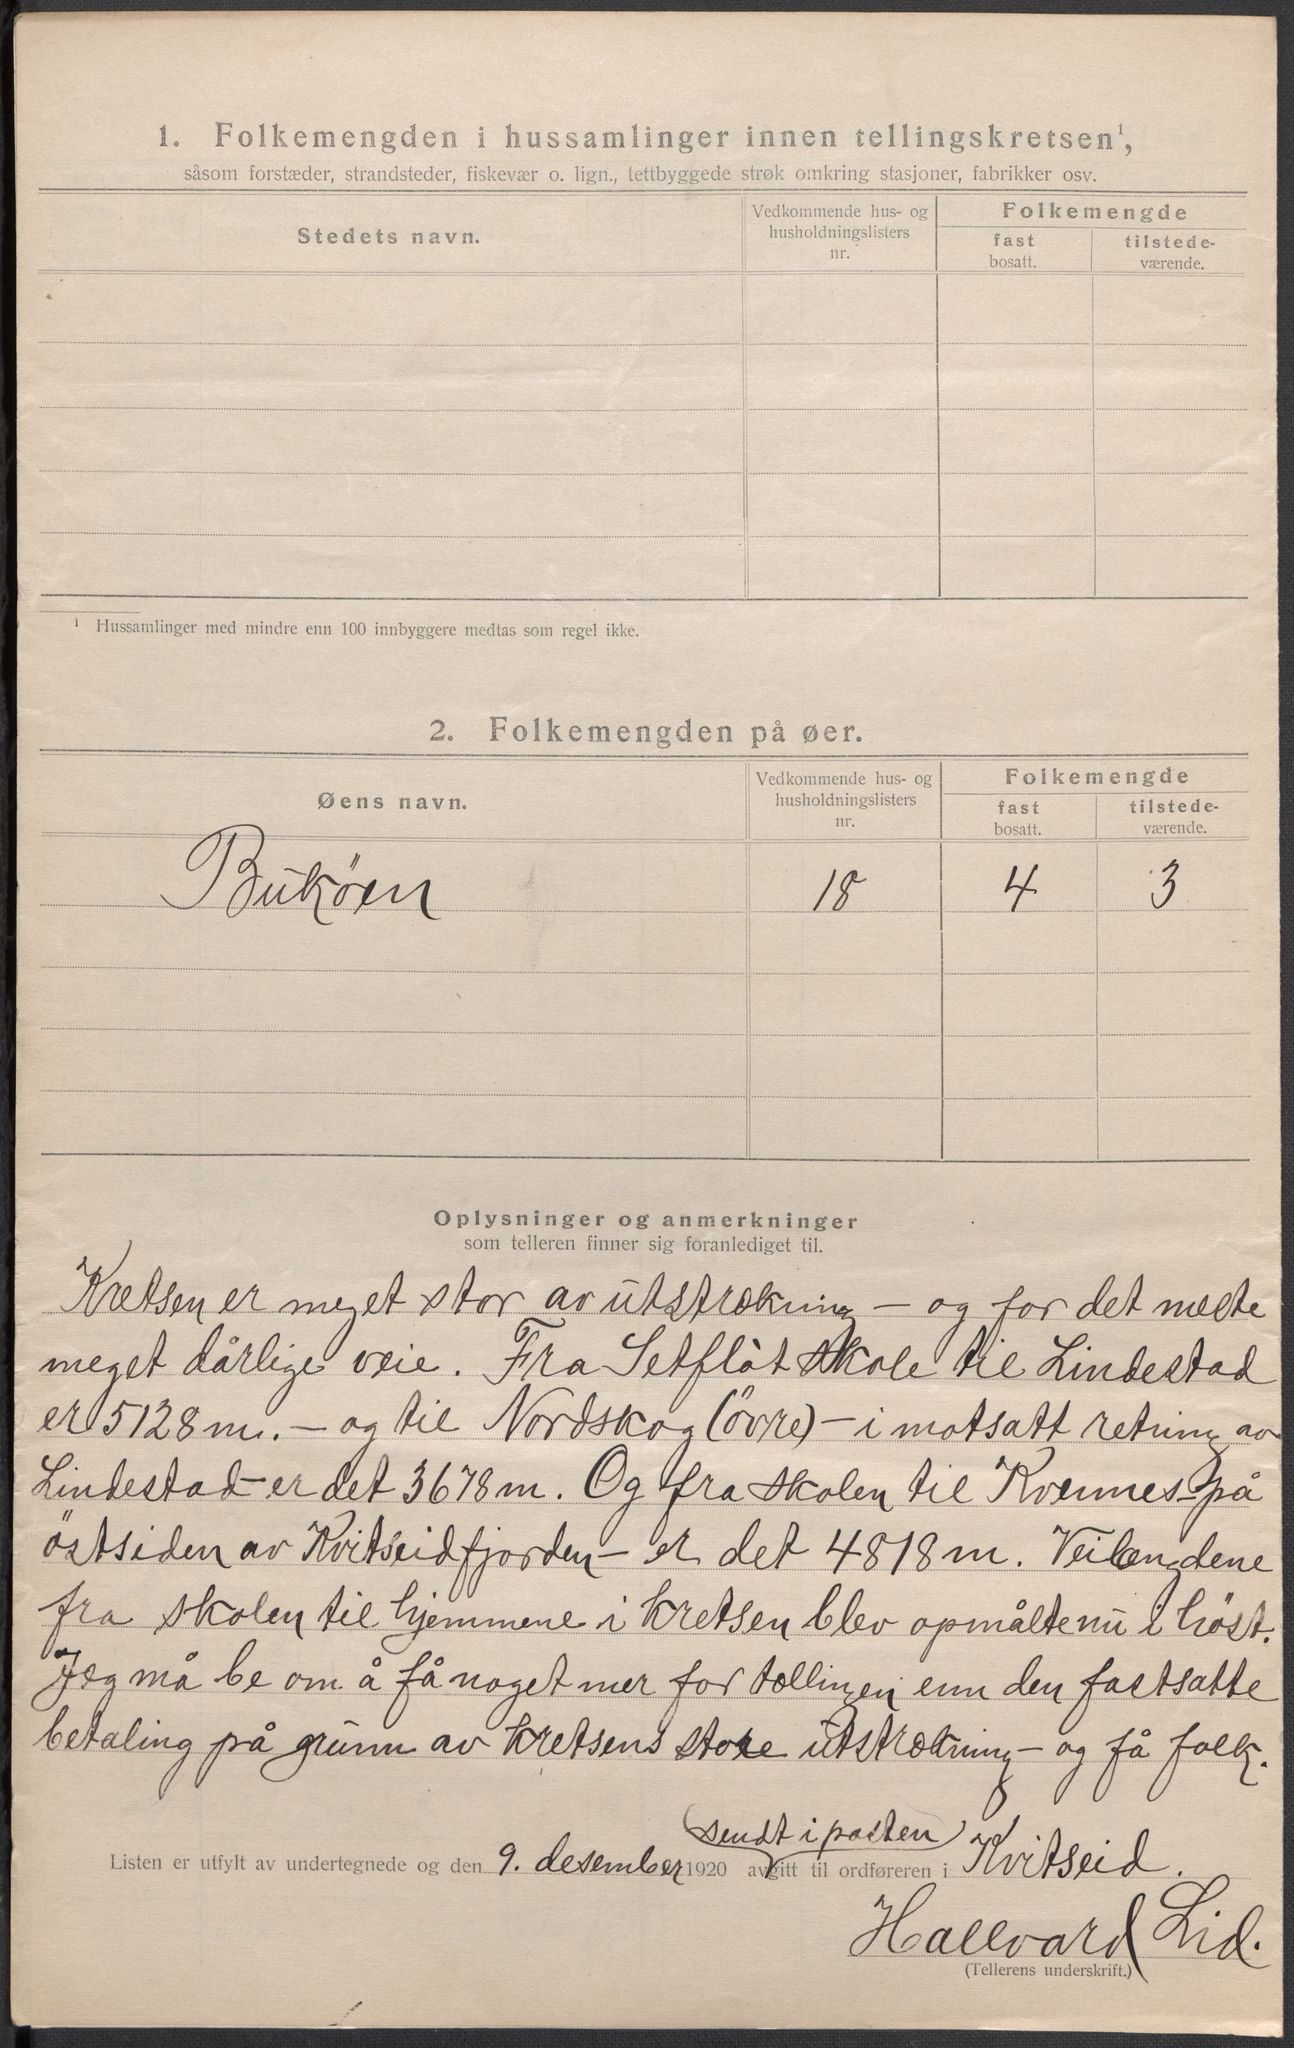 1. Folkemengden i hussamlinger innen tellingskretsen¹,
såsom forstæder, strandsteder, fiskevær o. lign., tettbyggede strøk omkring stasjoner, fabrikker osv.
Stedets navn.
Vedkommende hus- og
husholdningslisters
nr.
Folkemengde
fast
bosatt.
tilstede-
værende.
¹ Hussamlinger med mindre enn 100 innbyggere medtas som regel ikke.
2. Folkemengden på øer.
Øens navn.
Vedkommende hus- og
husholdningslisters
nr.
Folkemengde
fast
bosatt.
tilstede-
værende.
Buköen 18 4 3
Oplysninger og anmerkninger
som telleren finner sig foranlediget til.
Kretsen er meget stor av utstrekning – og for det meste
meget dårlige veie. Fra Setflåt skole til Lindestad
er 5128 m. – og til Nordskog (övre) – i motsatt retning av
Lindestad – er det 3678 m. Og fra skolen til Kvennes – på
östsiden av Kvitseidfjorden – er det 4818 m. Veilengdene
fra skolen til hjemmene i kretsen blev opmålte nu i höst.
Jeg må be om å få noget mer for tellingen enn den fastsatte
betaling på grunn av kretsens store utstrekning – og få folk.
sendt i posten
Listen er utfylt av undertegnede og den 9. desember 1920 avgitt til ordføreren i Kvitseid.
Hallvard Lid.
(Tellerens underskrift.)